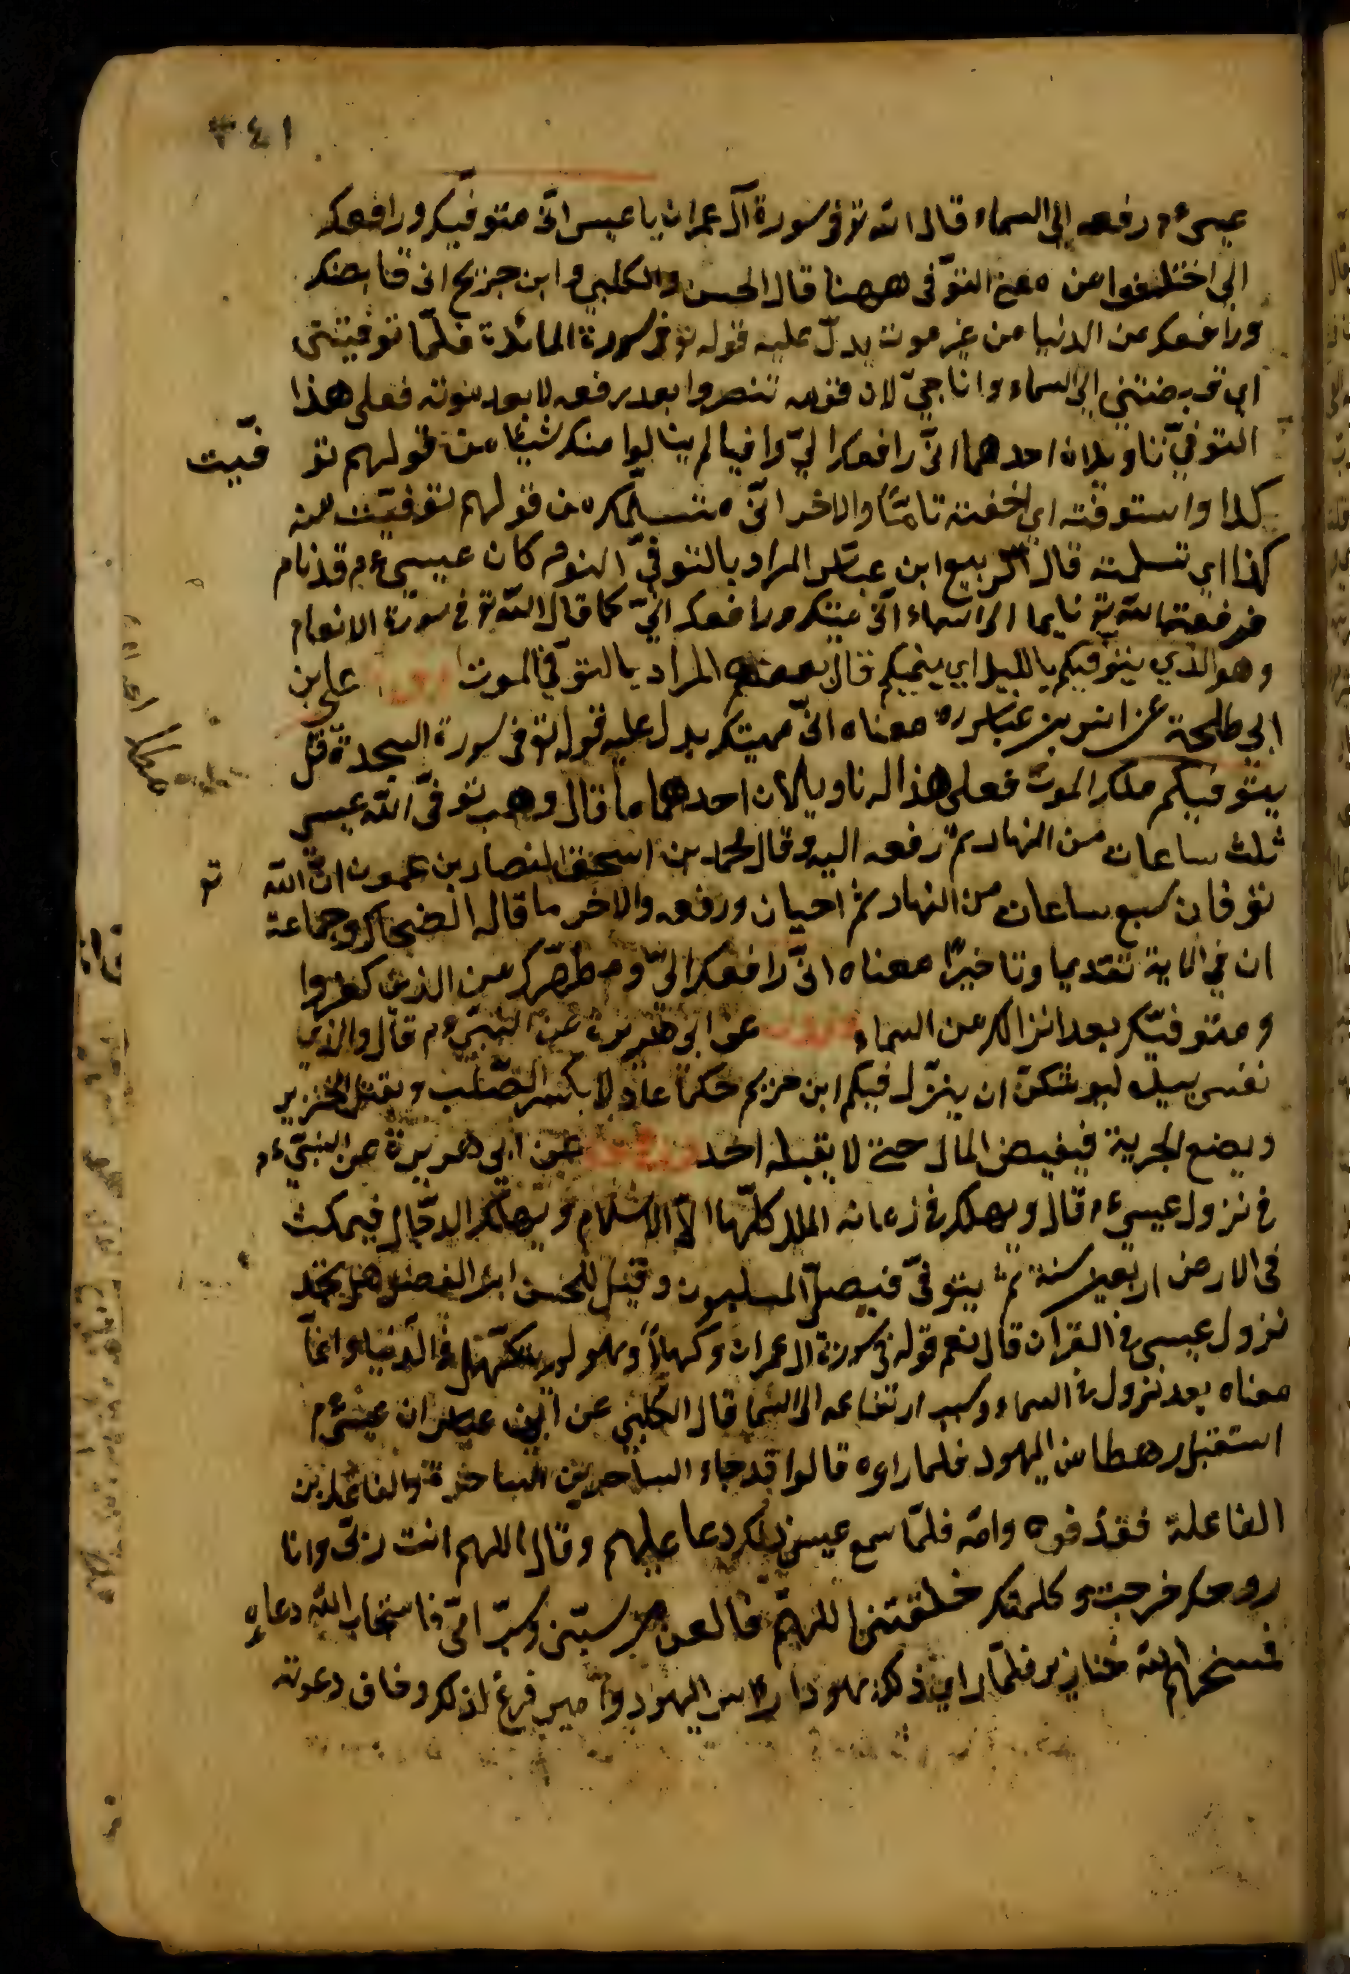 ٣٤١
عيسى ءم رفعه الى السماء قال الله تو فى سورة آل عمران يا عيسى انّى متوفّيك ورافعك
الى اختلفوا من معنى التوّفى ههنا قال الحسن والكلبي وابن جريج انى قابضك
ورافعك من الدنيا من غير موت يدلّ عليه قوله تو فى سورة المائدة فلمّا توفيتنى
اي قبضتني الى السماء وانا حيّ لان قومه تنصروا بعد رفعه لا بعد موته فعلى هذا
التوفيّ تاويلان احدهما انىّ رافعك اليّ وافيا لم ينالوا منك شيئا من قولهم تو فّيت
كذا واستوفته اي اخذته تامّاً والاخر انىّ متسلّمك من قولهم توفيّت منه
كذا اي تسلمته قال الربيع ابن عباس المراد بالتوفيّ النوم كان عيسى ءم قد نام
فرفعه الله تو نايما الى السماء انّى منيمك ورافعك اليّ كما قال اللّه تو فى سورة الانعام
وهو الذي يتوفّيكم بالليل اي ينيمكم قال بعضهم المراد بالتوّفى الموت على بن
ابي طلحة عن ابن عباس ره معناه انىّ مميتك يدل عليه قوله تو فى سورة السجدة قل
يتوّفيكم ملك الموت فعلى هذا له تاويلان احدهما ما قال وهب توفىّ اللّه عيسى
ثلث ساعات من النهار ثم رفعه اليه وقال محمد بن اسحق النصارى يزعمون انّ اللّه تو
توفان سبع ساعات من النهار ثم احيان ورفعه والاخر ما قاله الضحاك وجماعة
ان في الاية تقديما وتاخيرًا معناه انىّ رافعك الىّ ومطهّرك من الذين كفروا
ومتوفيّك بعد انزالك من السماء عن ابى هريرة عن النبىّ ءم قال والذي
نفسى بيده ليوشكنّ ان ينزّل فيكم ابن مريم حكمًا عادلا يكسر الصّليب ويقتل الخنزير
ويضع الجزية فيفيض المال حتى لا يقبله احد عن ابي هريرة عن النبىّ ءم
فى نزول عيسى ءم قال ويهلك فى زمانه الملل كلّها الاّ الاسلام ويهلك الدجّال فيمكث
فى الارض اربعين سنة ثم يتوفىّ فيصلّي المسلمون وقيل للحسن ابن الفضل هل تجد
نزول عيسى فى القرآن قال نعم قوله فى سورة ال عمران وكهلاً وهو لم يتكهّل فى الدنيا وانّما
معناه بعد نزوله من السماء وسبب ارتفاعه الى السما قال الكلبي عن ابن عباس ان عيسى ءم
استقبل رهطا من اليهود فلما راوه قالوا قد جاء الساحر بن الساحرة والفاعل بن
الفاعلة فقذفوه وامّه فلمّا سمع عيسى ذلك دعا عليهم وقال اللهم انت ربّى وانا
روحك خرجت وكلمتك خلقتنى اللهمّ فالعن من سبّنى وسبّ امّى فاستجاب اللّه دعاءه
فمسخهم اللّه خنازير فلمّا راى ذلك يهودا راس اليهود وامير فزع لذلك وخاف دعوته